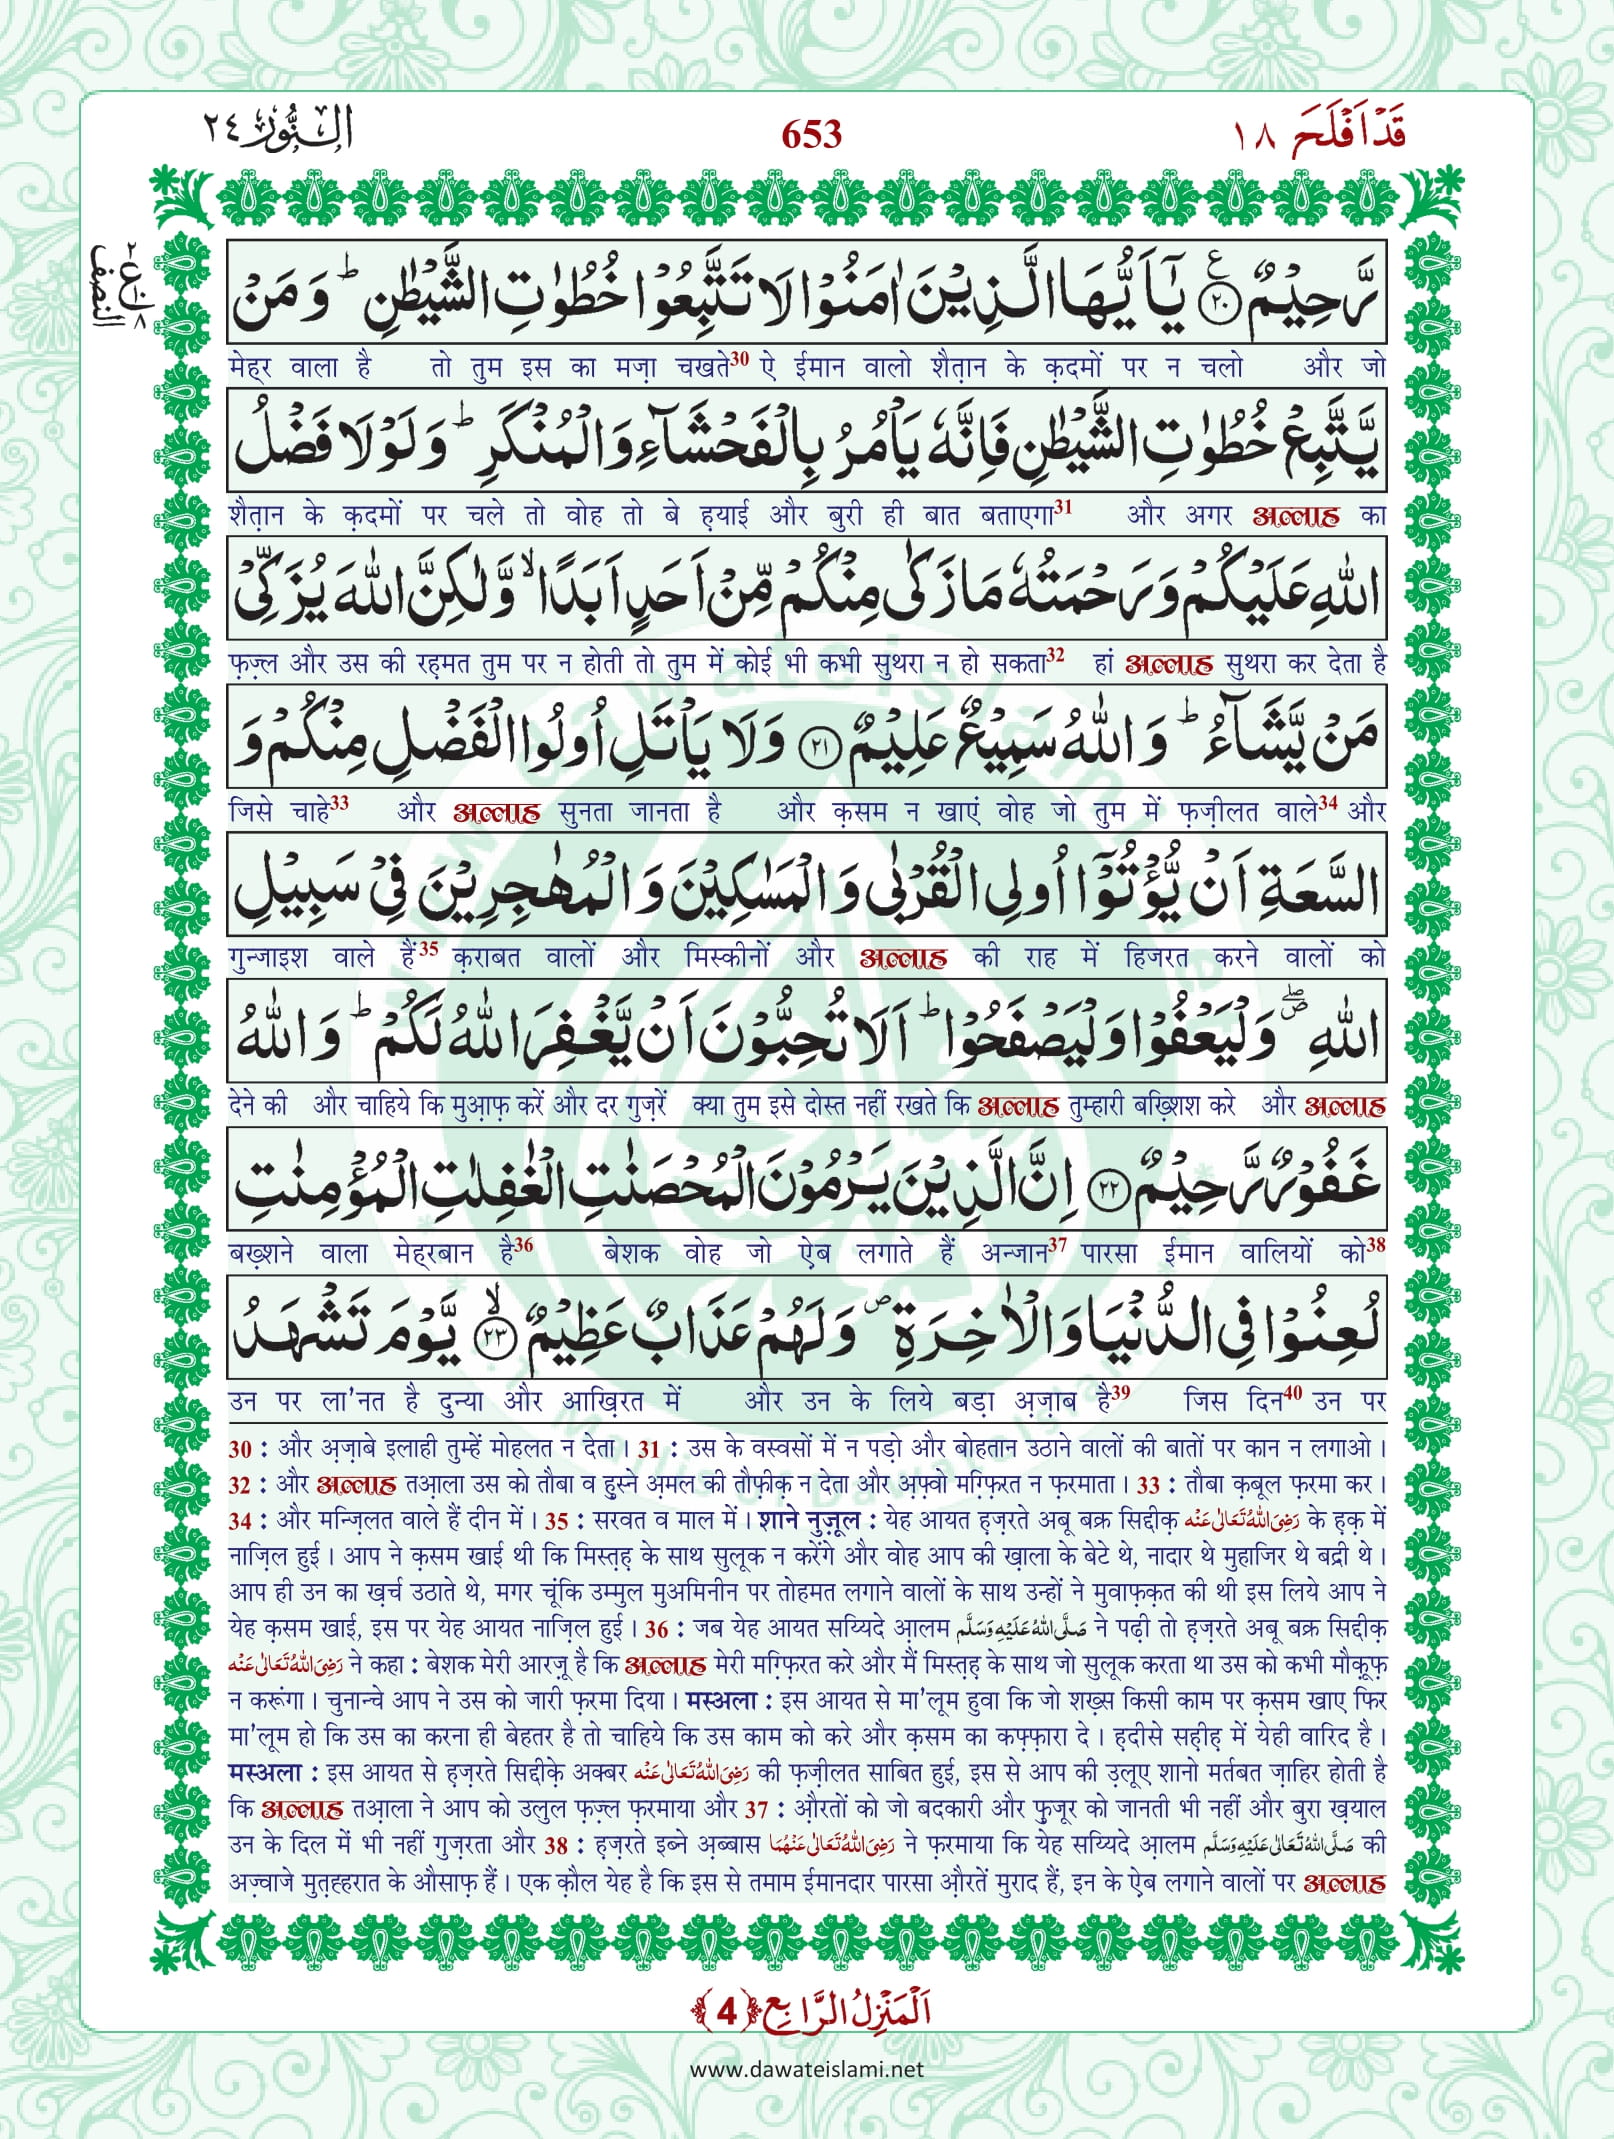 قَدْ اَفْلَحَ ١٨ 653 اَلنُّوْر ٢٤
رَّحِیْمٌ۠ ﴿۲۰﴾ یٰۤاَیُّهَا الَّذِیْنَ اٰمَنُوْا لَا تَتَّبِعُوْا خُطُوٰتِ الشَّیْطٰنِؕ وَ مَنْ
मेह्र वाला है तो तुम इस का मज़ा चखते30 ऐ ईमान वालो शैत़ान के क़दमों पर न चलो और जो
یَّتَّبِعْ خُطُوٰتِ الشَّیْطٰنِ فَاِنَّهٗ یَاْمُرُ بِالْفَحْشَآءِ وَ الْمُنْكَرِؕ وَ لَوْ لَا فَضْلُ
शैत़ान के क़दमों पर चले तो वोह तो बे ह़याई और बुरी ही बात बताएगा31 और अगर अल्लाह का
اللّٰهِ عَلَیْكُمْ وَ رَحْمَتُهٗ مَا زَكٰى مِنْكُمْ مِّنْ اَحَدٍ اَبَدًاۙ وَّ لٰكِنَّ اللّٰهَ یُزَكِّیْ
फ़ज़्ल और उस की रह़मत तुम पर न होती तो तुम में कोई भी कभी सुथरा न हो सकता32 हां अल्लाह सुथरा कर देता है
مَنْ یَّشَآءُؕ وَ اللّٰهُ سَمِیْعٌ عَلِیْمٌ ﴿۲۱﴾ وَ لَا یَاْتَلِ اُولُوا الْفَضْلِ مِنْكُمْ وَ
जिसे चाहे33 और अल्लाह सुनता जानता है और क़सम न खाएं वोह जो तुम में फ़ज़ीलत वाले34 और
السَّعَةِ اَنْ یُّؤْتُوْۤا اُولِی الْقُرْبٰى وَ الْمَسٰكِیْنَ وَ الْمُهٰجِرِیْنَ فِیْ سَبِیْلِ
गुन्जाइश वाले हैं35 क़राबत वालों और मिस्कीनों और अल्लाह की राह में हिजरत करने वालों को
اللّٰهِ ﳚ وَ لْیَعْفُوْا وَ لْیَصْفَحُوْاؕ اَلَا تُحِبُّوْنَ اَنْ یَّغْفِرَ اللّٰهُ لَكُمْؕ وَ اللّٰهُ
देने की और चाहिये कि मुआ़फ़ करें और दर गुज़रें क्या तुम इसे दोस्त नहीं रखते कि अल्लाह तुम्हारी बख़्शिश करे और अल्लाह
غَفُوْرٌ رَّحِیْمٌ ﴿۲۲﴾ اِنَّ الَّذِیْنَ یَرْمُوْنَ الْمُحْصَنٰتِ الْغٰفِلٰتِ الْمُؤْمِنٰتِ
बख़्शने वाला मेह्रबान है36 बेशक वोह जो ऐ़ब लगाते हैं अन्जान37 पारसा ईमान वालियों को38
لُعِنُوْا فِی الدُّنْیَا وَ الْاٰخِرَةِ۪ وَ لَهُمْ عَذَابٌ عَظِیْمٌۙ ﴿۲۳﴾ یَّوْمَ تَشْهَدُ
उन पर ला'नत है दुन्या और आख़िरत में और उन के लिये बड़ा अ़ज़ाब है39 जिस दिन40 उन पर
30 : और अ़ज़ाबे इलाही तुम्हें मोहलत न देता। 31 : उस के वस्वसों में न पड़ो और बोहतान उठाने वालों की बातों पर कान न लगाओ।
32 : और अल्लाह तआ़ला उस को तौबा व हु़स्ने अ़मल की तौफ़ीक़ न देता और अ़फ़्वो मग़्फ़िरत न फ़रमाता। 33 : तौबा क़बूल फ़रमा कर।
34 : और मन्ज़िलत वाले हैं दीन में। 35 : सरवत व माल में। शाने नुज़ूल : येह आयत ह़ज़रते अबू बक्र सिद्दीक़ رَضِیَ اللهُ تَعَالٰی عَنْه के ह़क़ में
नाज़िल हुई। आप ने क़सम खाई थी कि मिस्त़ह़ के साथ सुलूक न करेंगे और वोह आप की ख़ाला के बेटे थे, नादार थे मुहाजिर थे बद्री थे।
आप ही उन का ख़र्च उठाते थे, मगर चूंकि उम्मुल मुअमिनीन पर तोहमत लगाने वालों के साथ उन्हों ने मुवाफ़क़त की थी इस लिये आप ने
येह क़सम खाई, इस पर येह आयत नाज़िल हुई। 36 : जब येह आयत सय्यिदे आ़लम صَلَّی اللهُ عَلَیْهِ وَسَلَّم ने पढ़ी तो ह़ज़रते अबू बक्र सिद्दीक़
رَضِیَ اللهُ تَعَالٰی عَنْه ने कहा : बेशक मेरी आरज़ू है कि अल्लाह मेरी मग़्फ़िरत करे और मैं मिस्त़ह़ के साथ जो सुलूक करता था उस को कभी मौक़ूफ़
न करूंगा। चुनान्चे आप ने उस को जारी फ़रमा दिया। मस्अला : इस आयत से मा'लूम हुवा कि जो शख़्स किसी काम पर क़सम खाए फिर
मा'लूम हो कि उस का करना ही बेहतर है तो चाहिये कि उस काम को करे और क़सम का कफ़्फ़ारा दे। ह़दीसे सह़ीह़ में येही वारिद है।
मस्अला : इस आयत से ह़ज़रते सिद्दीक़े अक्बर رَضِیَ اللهُ تَعَالٰی عَنْه की फ़ज़ीलत साबित हुई, इस से आप की उ़लूए शानो मर्तबत ज़ाहिर होती है
कि अल्लाह तआ़ला ने आप को उलुल फ़ज़्ल फ़रमाया और 37 : औ़रतों को जो बदकारी और फ़ुजूर को जानती भी नहीं और बुरा ख़याल
उन के दिल में भी नहीं गुज़रता और 38 : ह़ज़रते इब्ने अ़ब्बास رَضِیَ اللهُ تَعَالٰی عَنْهُمَا ने फ़रमाया कि येह सय्यिदे आ़लम صَلَّی اللهُ تَعَالٰی عَلَیْهِ وَسَلَّم की
अज़्वाजे मुत़ह्हरात के औसाफ़ हैं। एक क़ौल येह है कि इस से तमाम ईमानदार पारसा औ़रतें मुराद हैं, इन के ऐ़ब लगाने वालों पर अल्लाह
اَلْمَنْزِلُ الرَّابِع ﴿4﴾
www.dawateislami.net